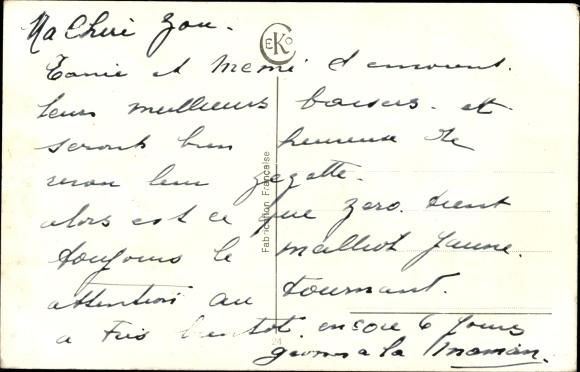 Ma Cheri Zou.
CEKO
et Mémé
leurs meilleurs baisers. et
seront bien heureuse de
leur zezette.
alors est ce que zero. tient
toujours le maillot jaune.
attention au tournant.
a bientot. encore 6 jours
a la Maman.
Fabrication Française
24